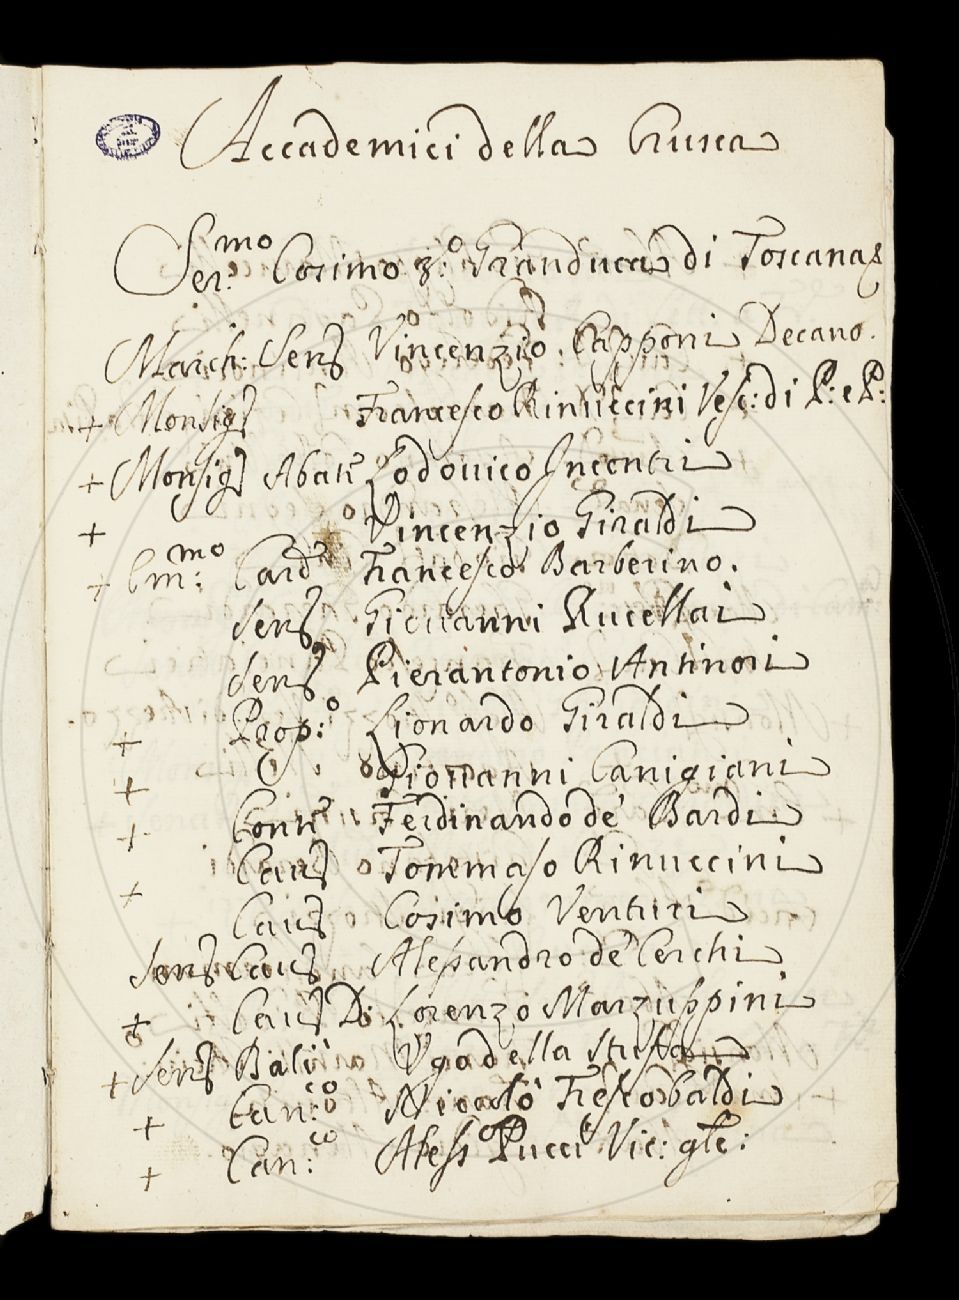 Accademici della Crusca
Ser.mo Cosimo 3.o Granduca di Toscana
March: Senr Vincenzio Capponi Decano.
+ Monsigr Francesco Rinuccini Vesc: di P: e P:
+ Monsigr Abate Lodovico Incontri
+ Vincenzio Giraldi
+ Em:mo Card Francesco Barberino.
Senr Giovanni Rucellai
Senr Pierantonio Antinori
+ Prop:o Lionardo Giraldi
+ Giovanni Canigiani
+ Conte Ferdinando de' Bardi
Caur Tommaso Rinuccini
+ Caur Cosimo Venturi
Senr Caur Alessandro de' Cerchi
+ Caur D: Lorenzo Marzuppini
+ Senr Balì Ugo della Stufa
+ Can:co Niccolò Frescobaldi
+ Can:co Aless Pucci Vic: gle: